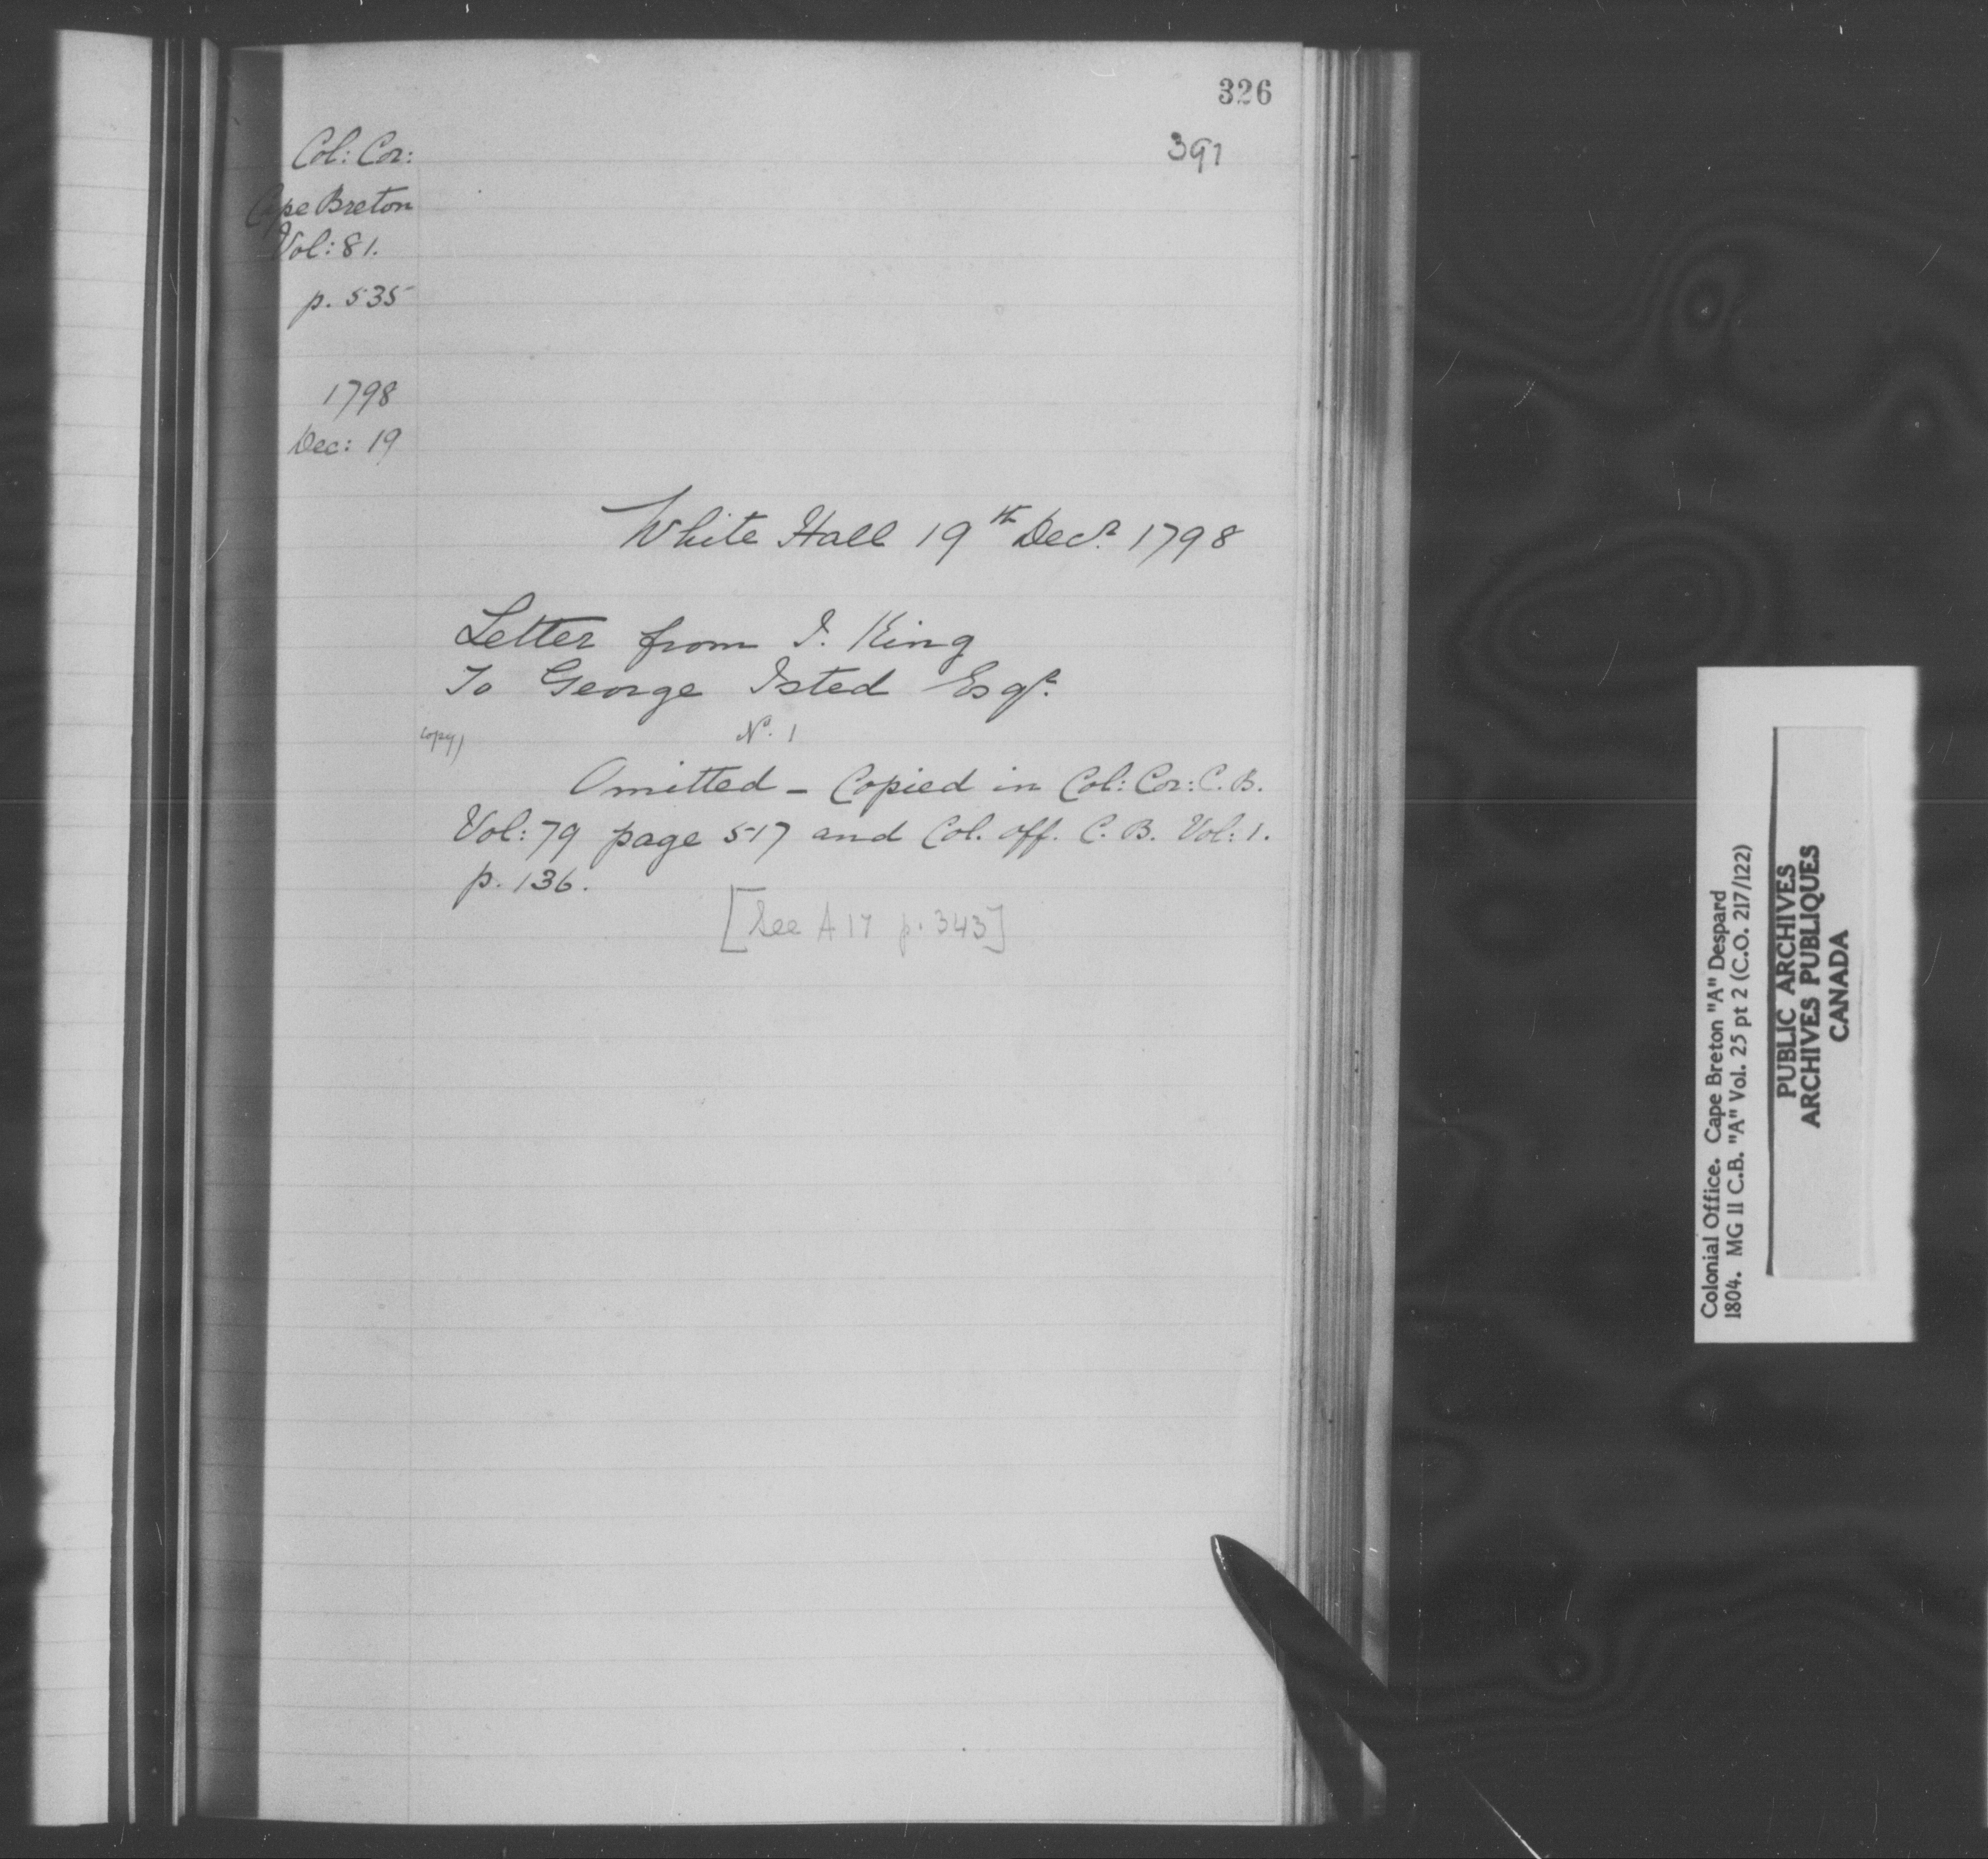 326
391
Col: Cor:
Cape Breton
Vol: 81.
p. 535
1798
Dec: 19
White Hall 19th Decr. 1798
Letter from J. King
To George Isted Esqr.
copy)
No. 1
Omitted - Copied in Col: Cor: C. B.
Vol: 79 page 517 and Col. Off. C. B. Vol: 1.
p. 136.
[See A 17 p. 343]
Colonial Office. Cape Breton "A" Despard
1804. MG 11 C.B. "A" Vol. 25 pt 2 (C.O. 217/122)
PUBLIC ARCHIVES
ARCHIVES PUBLIQUES
CANADA